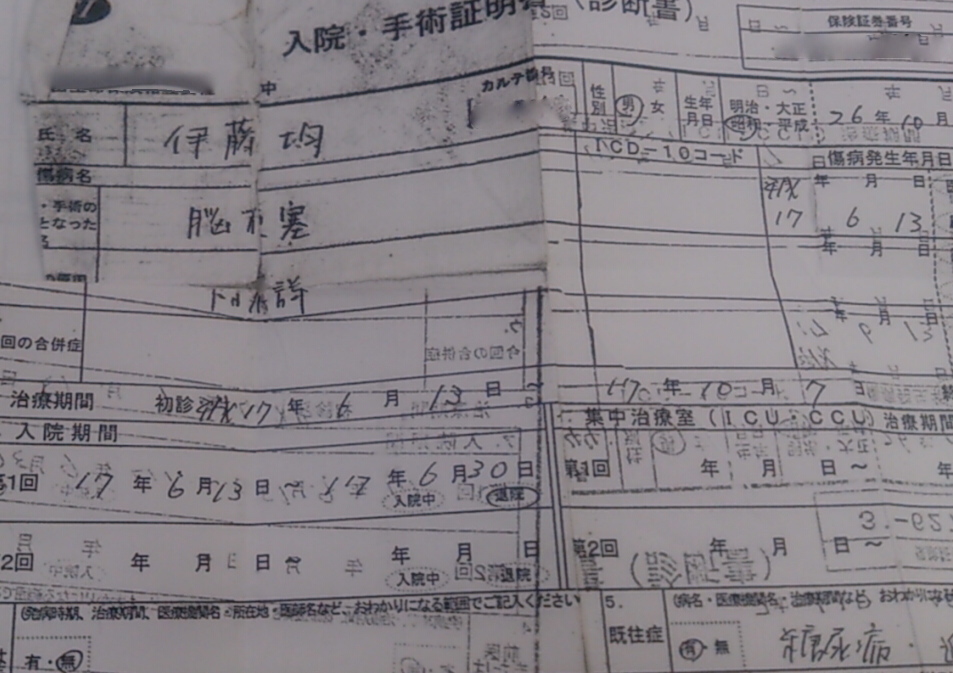 入院・手術証明書（診断書）
保険証券番号
カルテ番号
性別 男 女 生年月日 明治・大正 昭和・平成 26年10月
氏名 伊藤 均
ICD-10コード 傷病発生年月日
傷病名
年 月 日
・手術の
となった
脳梗塞
17 6 13
年 月 日
不詳
年 月 日
回の合併症
治療期間 初診 17年6月13日〜17年10月7日
入院期間
集中治療室（ICU・CCU）治療期間
第1回 17年6月13日〜17年6月30日 入院中 退院
第1回 年 月 日〜 年
第2回 年 月 日〜 年 月 日 入院中 退院
第2回 年 月 日〜
(発病時期、治療期間、医療機関名・所在地・医師名など、おわかりになる範囲でご記入ください
有・無
5.
既往症
(病名・医療機関名・治療期間など、おわかりになる
有・無 糖尿病